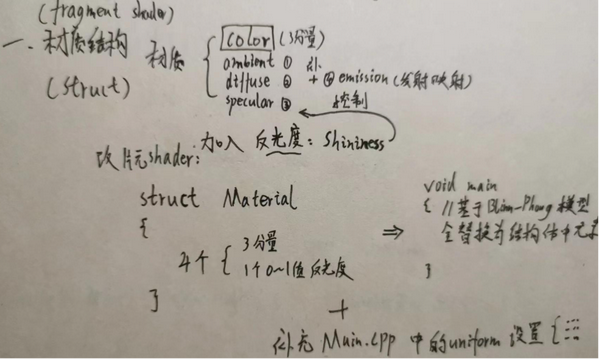 (fragment shader)
一、材质结构
(struct)
材质 { color (3分量)
ambient ① 补
diffuse ② + ④ emission (发射映射)
specular ③ 控制
加入 反光度: Shininess
改片元shader:
struct Material
{
4个 { 3分量
1个0~1值反光度
}
⇒
void main
{ //基于Blinn-Phong 模型
全替换为结构体中元素
}
+
补充 Main.cpp 中的uniform 设置 {